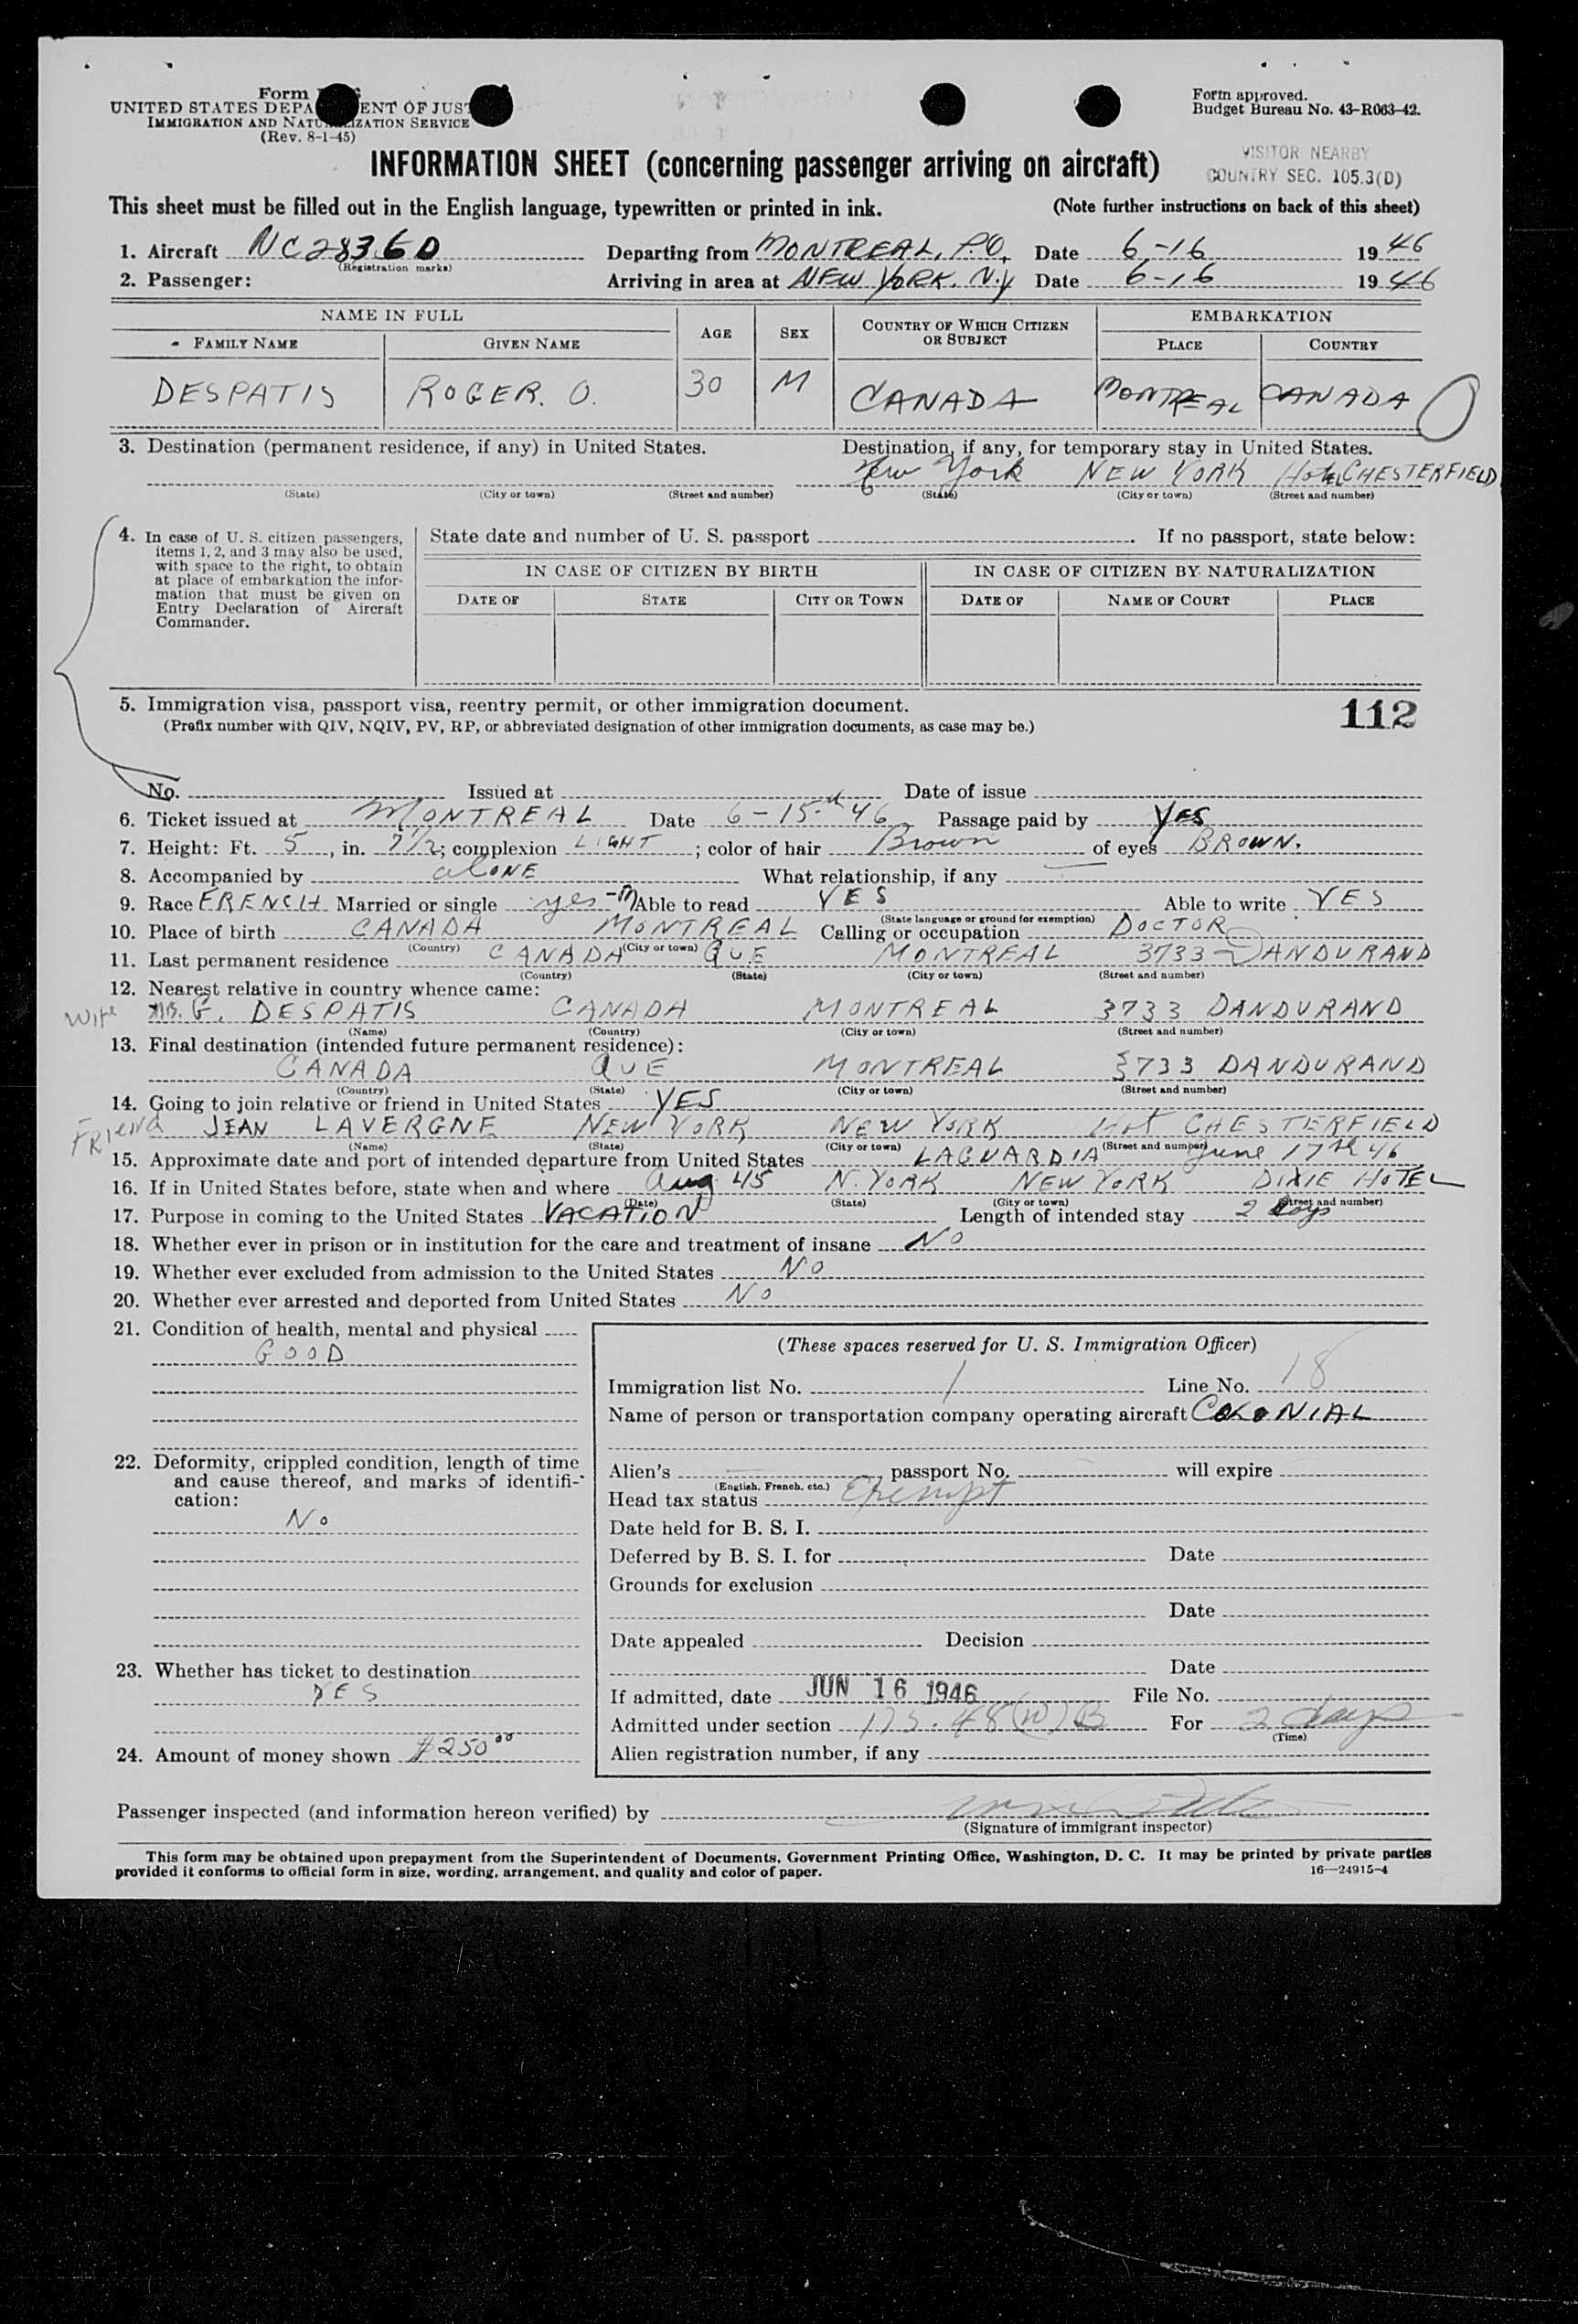 Form
UNITED STATES DEPA ENT OF JUST
IMMIGRATION AND NATU IZATION SERVICE
(Rev. 8-1-45)
Form approved.
Budget Bureau No. 43-R063-42.
INFORMATION SHEET (concerning passenger arriving on aircraft)
VISITOR NEARBY
COUNTRY SEC. 105.3(D)
This sheet must be filled out in the English language, typewritten or printed in ink. (Note further instructions on back of this sheet)
1. Aircraft NC28360 Departing from MONTREAL, P.Q. Date 6-16 1946
(Registration marks)
2. Passenger: Arriving in area at NEW YORK. N.Y Date 6-16 1946
NAME IN FULL AGE SEX COUNTRY OF WHICH CITIZEN OR SUBJECT EMBARKATION
FAMILY NAME GIVEN NAME PLACE COUNTRY
DESPATIS ROGER. O. 30 M CANADA MONTREAL CANADA
3. Destination (permanent residence, if any) in United States. Destination, if any, for temporary stay in United States.
New York NEW YORK Hotel CHESTERFIELD
(State) (City or town) (Street and number) (State) (City or town) (Street and number)
4. In case of U. S. citizen passengers, items 1, 2, and 3 may also be used, with space to the right, to obtain at place of embarkation the information that must be given on Entry Declaration of Aircraft Commander.
State date and number of U. S. passport . If no passport, state below:
IN CASE OF CITIZEN BY BIRTH IN CASE OF CITIZEN BY NATURALIZATION
DATE OF STATE CITY OR TOWN DATE OF NAME OF COURT PLACE
5. Immigration visa, passport visa, reentry permit, or other immigration document. 112
(Prefix number with QIV, NQIV, PV, RP, or abbreviated designation of other immigration documents, as case may be.)
No. Issued at Date of issue
6. Ticket issued at MONTREAL Date 6-15th 46 Passage paid by Yes
7. Height: Ft. 5, in. 7 1/2; complexion LIGHT; color of hair Brown of eyes BROWN.
8. Accompanied by alone What relationship, if any
9. Race FRENCH Married or single yes-M Able to read YES Able to write YES
(State language or ground for exemption)
10. Place of birth CANADA MONTREAL Calling or occupation DOCTOR
(Country) (City or town)
11. Last permanent residence CANADA QUE MONTREAL 3733 DANDURAND
(Country) (State) (City or town) (Street and number)
12. Nearest relative in country whence came:
Wife G. DESPATIS CANADA MONTREAL 3733 DANDURAND
(Name) (Country) (City or town) (Street and number)
13. Final destination (intended future permanent residence):
CANADA QUE MONTREAL 3733 DANDURAND
(Country) (State) (City or town) (Street and number)
14. Going to join relative or friend in United States YES
FRiend JEAN LAVERGNE NEW YORK NEW YORK Hot CHESTERFIELD
(Name) (State) (City or town) (Street and number)
15. Approximate date and port of intended departure from United States LAGUARDIA June 17th 46
16. If in United States before, state when and where Aug 45 N. YORK NEW YORK DIXIE HOTEL
(Date) (State) (City or town) (Street and number)
17. Purpose in coming to the United States VACATION Length of intended stay 2 days
18. Whether ever in prison or in institution for the care and treatment of insane No
19. Whether ever excluded from admission to the United States No
20. Whether ever arrested and deported from United States No
21. Condition of health, mental and physical
GOOD
22. Deformity, crippled condition, length of time
and cause thereof, and marks of identifi-
cation:
No
23. Whether has ticket to destination
YES
24. Amount of money shown $250.00
(These spaces reserved for U. S. Immigration Officer)
Immigration list No. 1 Line No. 18
Name of person or transportation company operating aircraft COLONIAL
Alien's passport No. will expire
(English, French, etc.)
Head tax status Exempt
Date held for B. S. I.
Deferred by B. S. I. for Date
Grounds for exclusion
Date
Date appealed Decision
Date
If admitted, date JUN 16 1946 File No.
Admitted under section For 2 days
(Time)
Alien registration number, if any
Passenger inspected (and information hereon verified) by
(Signature of immigrant inspector)
This form may be obtained upon prepayment from the Superintendent of Documents, Government Printing Office, Washington, D. C. It may be printed by private parties
provided it conforms to official form in size, wording, arrangement, and quality and color of paper. 16—24915-4